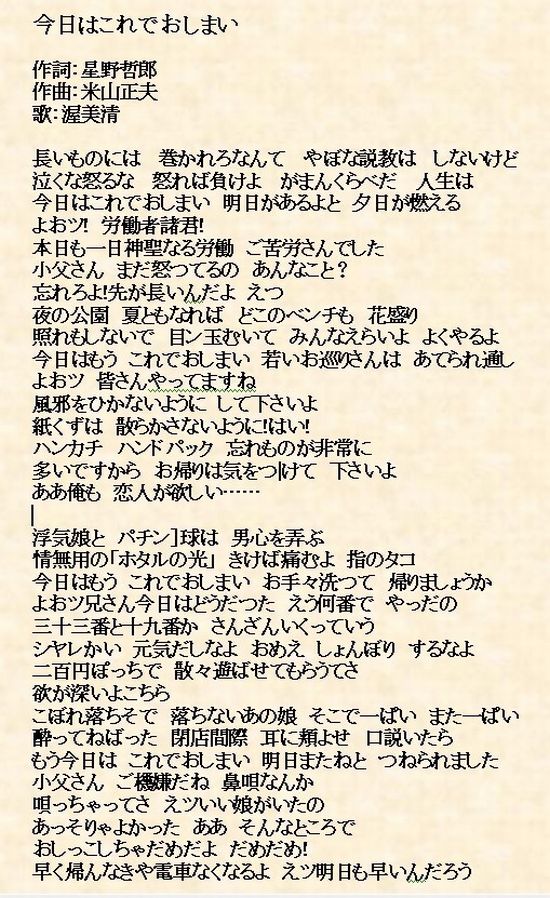 今日はこれでおしまい
作詞：星野哲郎
作曲：米山正夫
歌：渥美清
長いものには　巻かれろなんて　やぼな説教は　しないけど
泣くな怒るな　怒れば負けよ　がまんくらべだ　人生は
今日はこれでおしまい　明日があるよと　夕日が燃える
よおツ!　労働者諸君!
本日も一日神聖なる労働　ご苦労さんでした
小父さん　まだ怒つてるの　あんなこと？
忘れろよ!先が長いんだよ　えつ
夜の公園　夏ともなれば　どこのベンチも　花盛り
照れもしないで　目ン玉むいて　みんなえらいよ　よくやるよ
今日はもう　これでおしまい　若いお巡りさんは　あてられ通し
よおツ　皆さんやってますね
風邪をひかないように　して下さいよ
紙くずは　散らかさないように!はい!
ハンカチ　ハンドパック　忘れものが非常に
多いですから　お帰りは気をつけて　下さいよ
ああ俺も　恋人が欲しい……
浮気娘と　パチン］球は　男心を弄ぶ
情無用の「ホタルの光」　きけば痛むよ　指のタコ
今日はもう　これでおしまい　お手々洗つて　帰りましょうか
よおツ兄さん今日はどうだつた　えう何番で　やっだの
三十三番と十九番か　さんざんいくっていう
シヤレかい　元気だしなよ　おめえ　しょんぼり　するなよ
二百円ぽっちで　散々遊ばせてもらうてさ
欲が深いよこちら
こぼれ落ちそで　落ちないあの娘　そこで一ぱい　また一ぱい
酔ってねばった　閉店間際　耳に頬よせ　口説いたら
もう今日は　これでおしまい　明日またねと　つねられました
小父さん　ご機嫌だね　鼻唄なんか
唄っちゃってさ　えツいい娘がいたの
あっそりゃよかった　ああ　そんなところで
おしっこしちゃだめだよ　だめだめ!
早く帰んなきや電車なくなるよ　えツ明日も早いんだろう